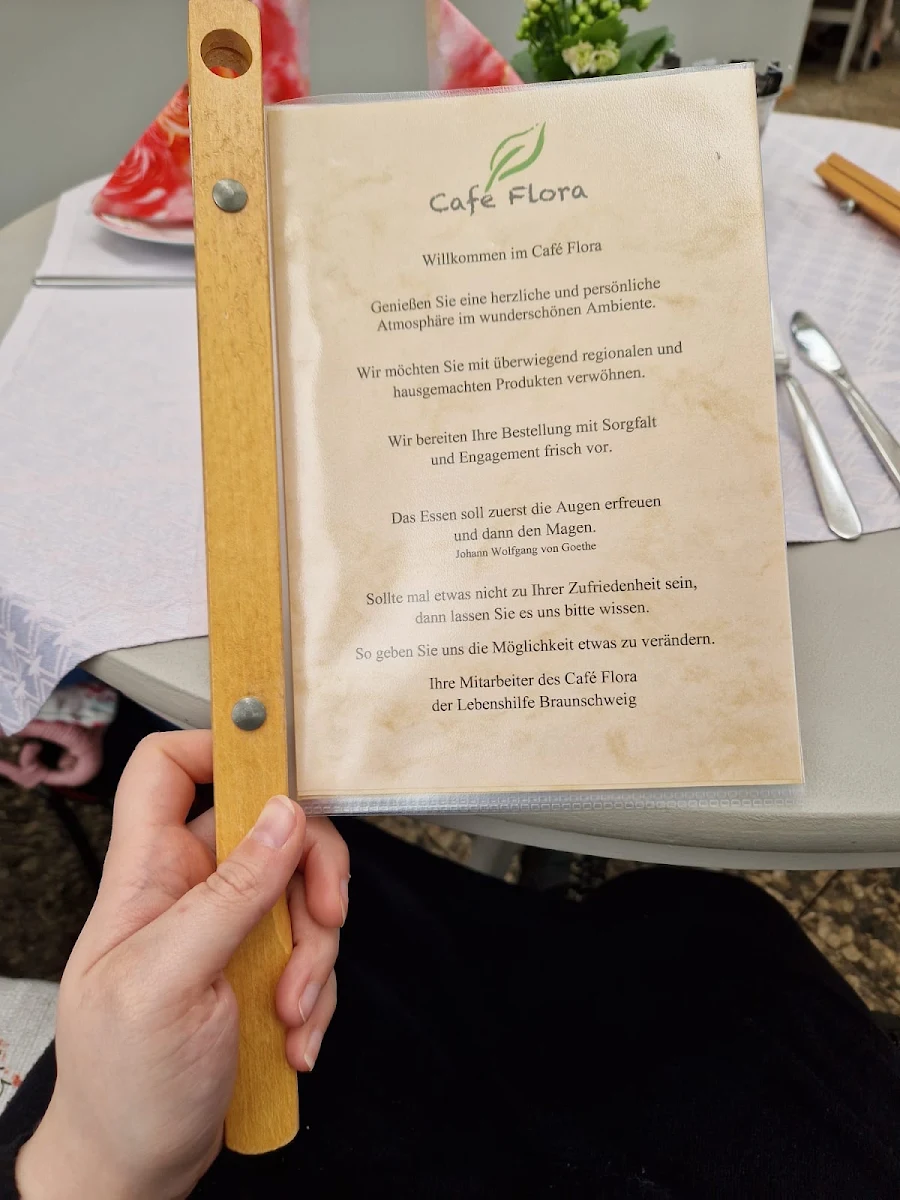 Café Flora
Willkommen im Café Flora
Genießen Sie eine herzliche und persönliche
Atmosphäre im wunderschönen Ambiente.
Wir möchten Sie mit überwiegend regionalen und
hausgemachten Produkten verwöhnen.
Wir bereiten Ihre Bestellung mit Sorgfalt
und Engagement frisch vor.
Das Essen soll zuerst die Augen erfreuen
und dann den Magen.
Johann Wolfgang von Goethe
Sollte mal etwas nicht zu Ihrer Zufriedenheit sein,
dann lassen Sie es uns bitte wissen.
So geben Sie uns die Möglichkeit etwas zu verändern.
Ihre Mitarbeiter des Café Flora
der Lebenshilfe Braunschweig